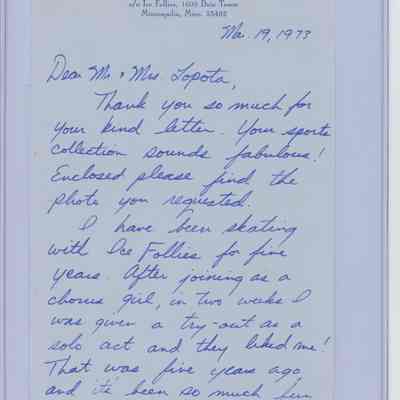 c/o Ice Follies, 1605 Dain Tower
Minneapolis, Minn. 55402
Mar. 19, 1973
Dear Mr. & Mrs Lopota,
Thank you so much for
your kind letter. Your sports
collection sounds fabulous!
Enclosed please find the
photo you requested.
I have been skating
with Ice Follies for five
years. After joining as a
chorus girl, in two weeks I
was given a try-out as a
solo act and they liked me!
That was five years ago
and it's been so much fun